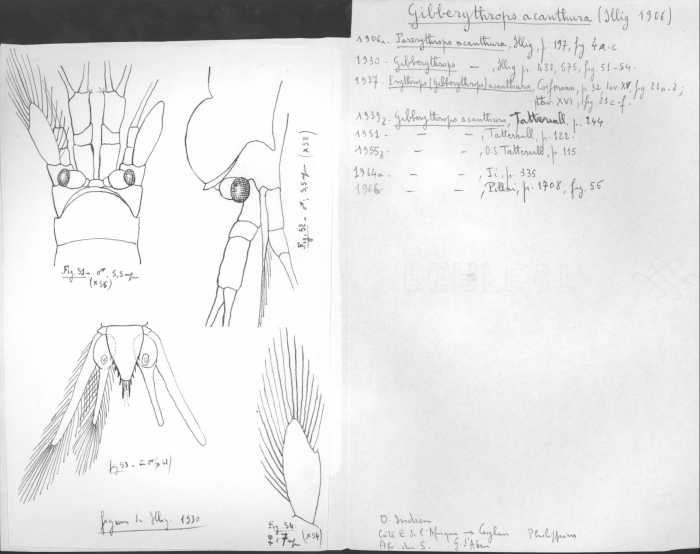 Gibberythrops acanthura (Illig 1906)
1906a- Parerythrops acanthura, Illig, p. 197, fig 4a-c
1930 - Gibberythrops — , Illig p. 432, 575, fig 51-54.
1937 - Erythrops (Gibberythrops) acanthura, p. 32, tav XV fig. 21a-b;
tav XVI, fig. 21c-f.
1939z- Gibberythrops acanthura, Tattersall, p. 244
1951 - — — , Tattersall, p. 122
1955z- — — , O.S Tattersall, p. 115.
1964a - — — , Ii, p. 335
1966 - — — , Pillai, p. 1708, fig. 55
Fig. 51- ♂, 5,5 m
(x36)
Fig. 52 - ♂, 5,5 m (x58)
fig. 53 - ♂ (x41)
Fig. 54.
♀ 7 m (x54)
Illig. 1930
O. Indien
Côte E de l'Afrique → Ceylan Philippines
Afr. du S. G. d'Aden